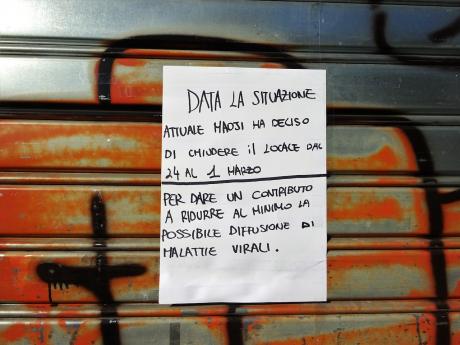 DATA LA SITUAZIONE
ATTUALE HAOJI HA DECISO
DI CHIUDERE il LOCALE DAL
24 AL 1 MARZO
PER DARE UN CONTRIBUTO
A RIDURRE AL MINIMO LA
POSSIBILE DIFFUSIONE DI
MALATTIE VIRALI.